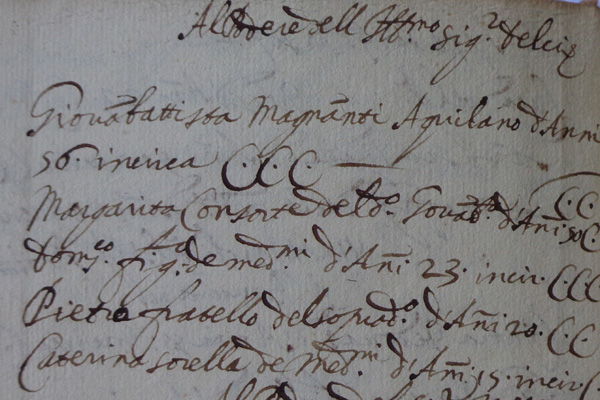 Al Podere dell Ill.mo Sig.r Felcix
Giovābattista Magnānti Aquilano d'Anni
56. incirca C.C.C.
Margarita Consorte del d.o Giovāb.ta d'Añi 50 C.C.C.
Dom.co fig.o de med.mi d'Añi 23. incir. C.C.C.
Pietro fratello del soprad.o d'Añi 20. C.C.
Caterina sorella de med.mi d'Añi 15. incir. C.